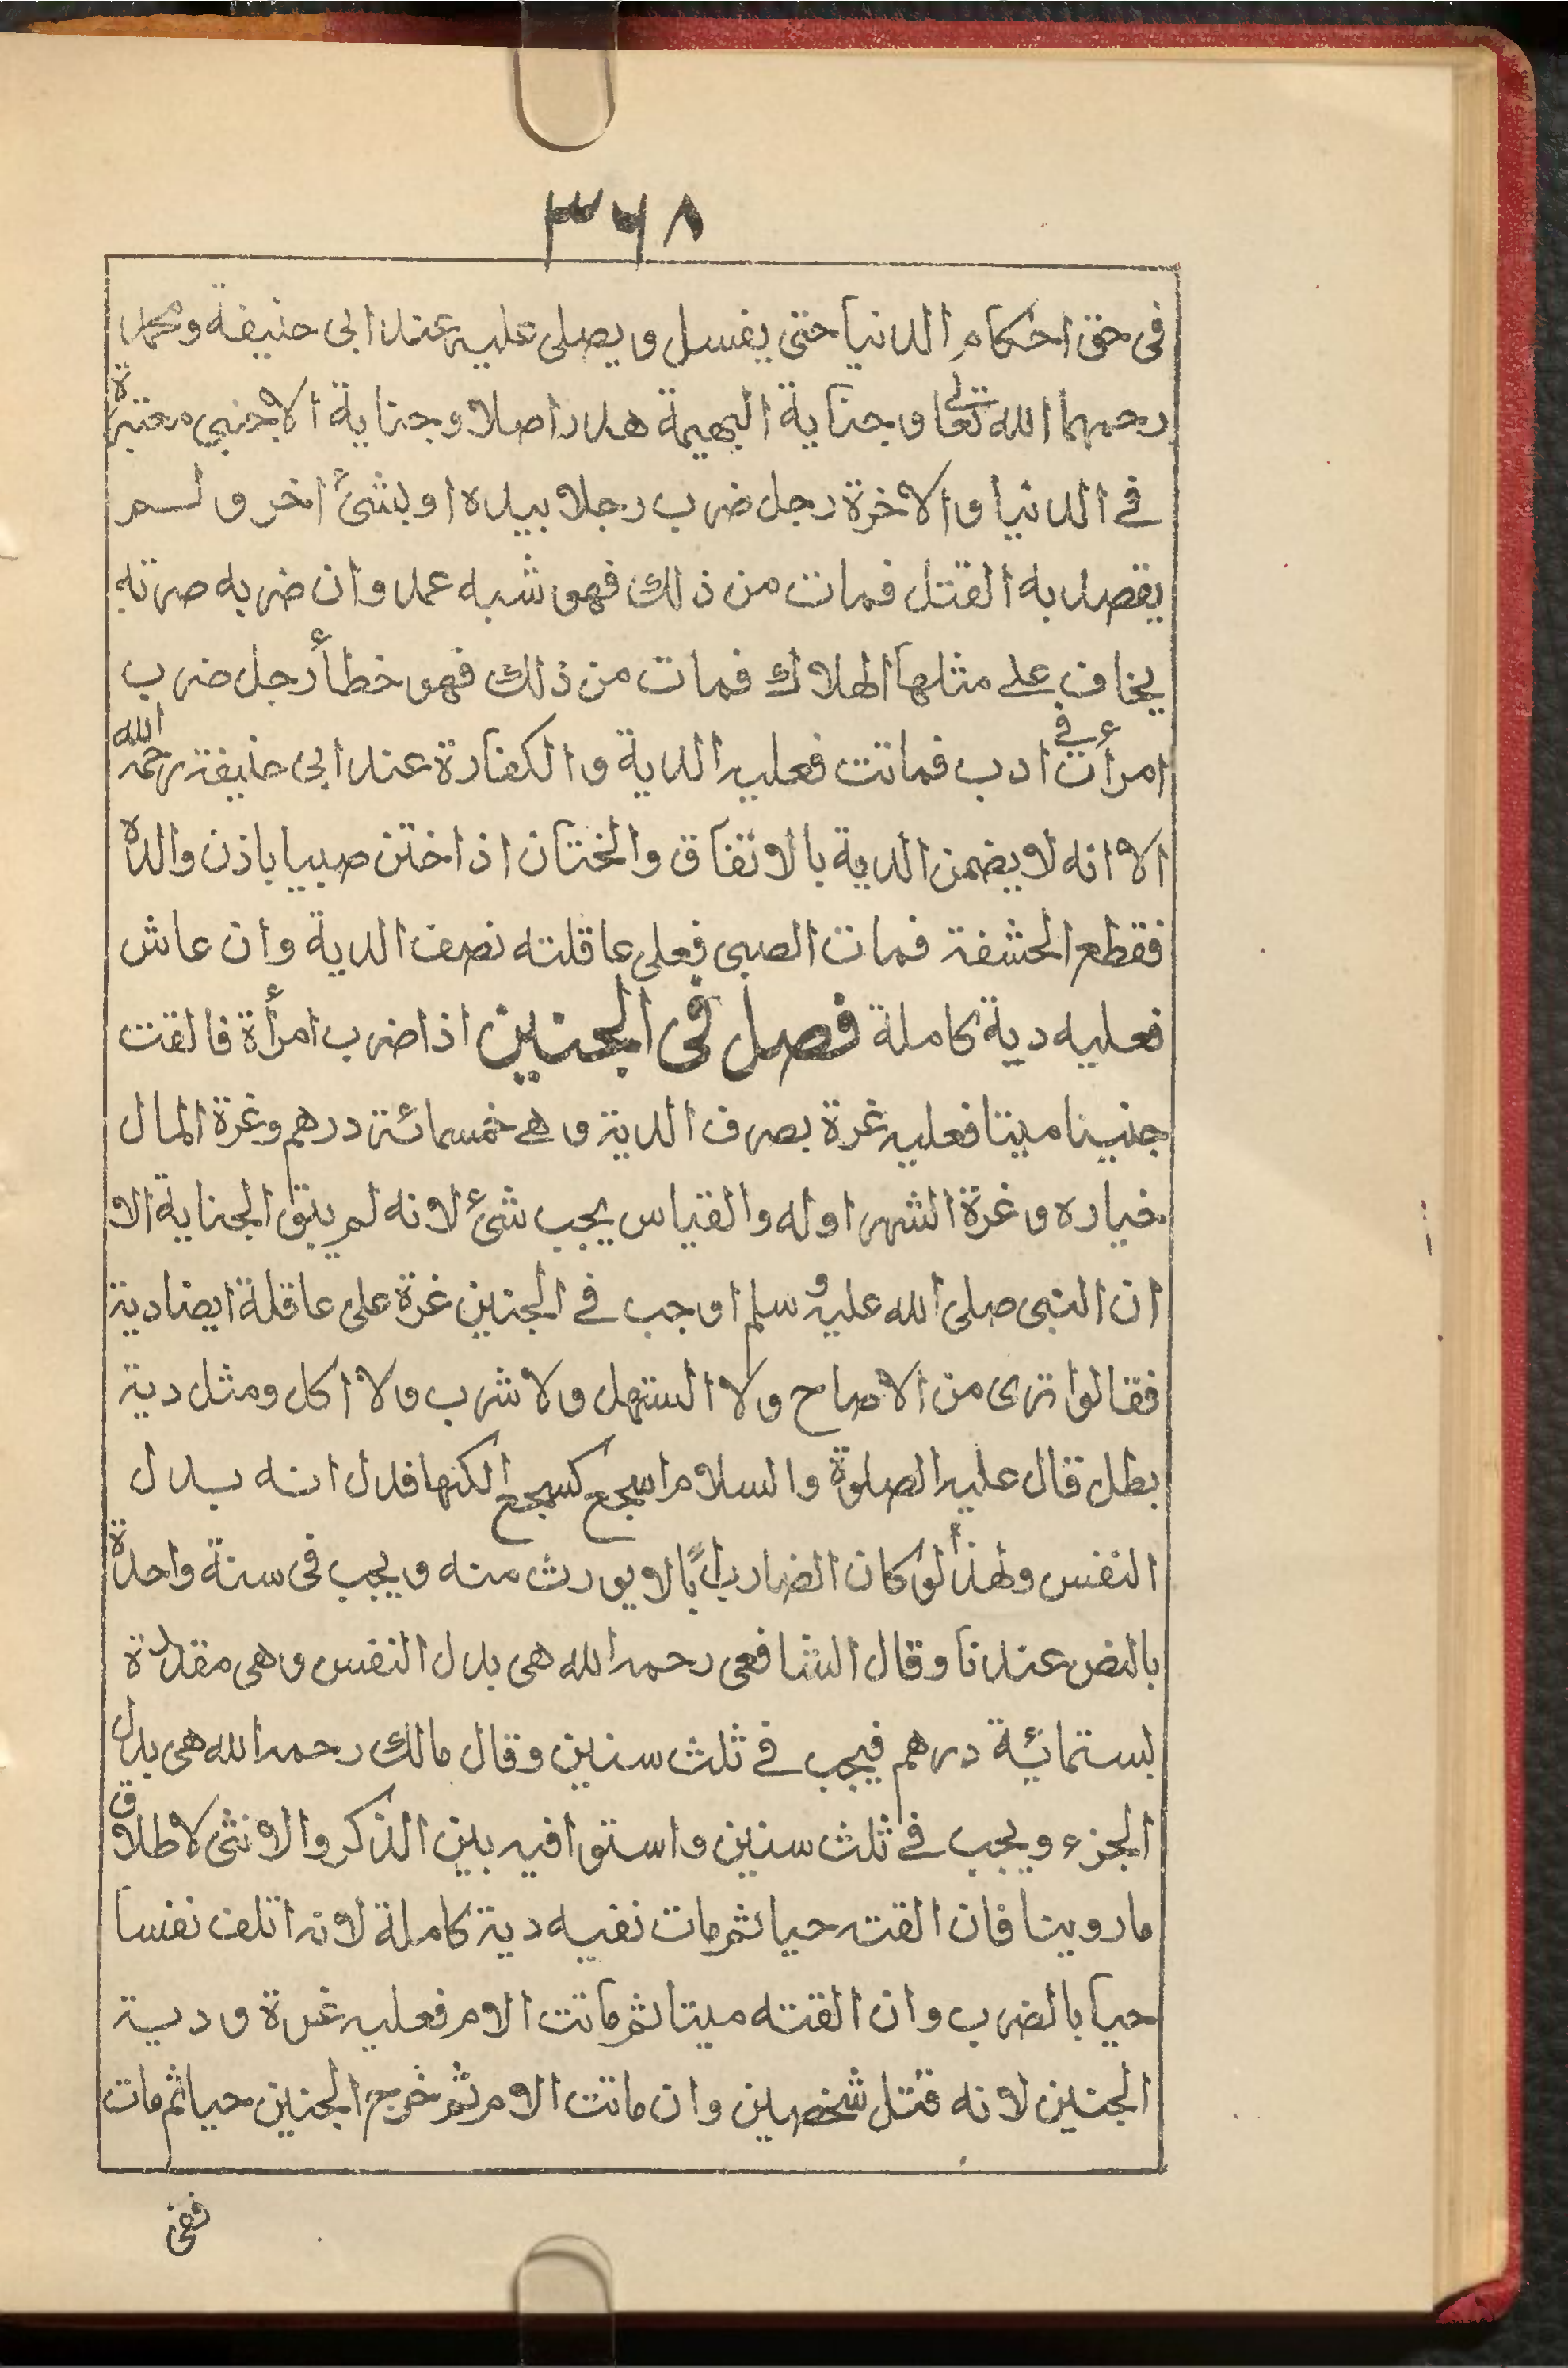 ٣٦٨
فى حق احكام الدنيا حتى يغسل ويصلى عليه عند ابى حنيفة ومحمد
رحمهما الله تعالى وجناية البهيمة هدر اصلا وجناية الاجنبى معتبرة
فى الدنيا والاخرة رجل ضرب رجلا بيده او بشئ اخر ولم
يقصد به القتل فمات من ذلك فهو شبه عمد وان ضربه ضربة
يخاف على مثلها الهلاك فمات من ذلك فهو خطأ رجل ضرب
امرأته فى ادب فماتت فعليه الدية والكفارة عند ابى حنيفة رحمه الله
الا انه لا يضمن الدية بالاتفاق والختان اذا ختن صبيا باذن والده
فقطع الحشفة فمات الصبى فعلى عاقلته نصف الدية وان عاش
فعليه دية كاملة فصل فى الجنين اذا ضرب امرأة فالقت
جنينا ميتا فعليه غرة بصرف الدية وهى خمسمائة درهم وغرة المال
خياره وغرة الشهر اوله والقياس يجب شئ لانه لم يبق الجناية الا
ان النبى صلى الله عليه وسلم اوجب فى الجنين غرة على عاقلة ايضا دية
فقالوا ترى من الاصاح ولا استهل ولا شرب ولا اكل ومثل دية
بطل قال عليه الصلوة والسلام اسجع كسجع الكنها فدل انه بدل
النفس ولهذا لو كان الضارب ابًا لا يورث منه ويجب فى سنة واحدة
بالنص عندنا وقال الشافعى رحمه الله هى بدل النفس وهى مقدرة
بستمائة درهم فيجب فى ثلث سنين وقال مالك رحمه الله هى بدل
الجزء ويجب فى ثلث سنين واستوا فيه بين الذكر والانثى لاطلاق
ما روينا فان القته حيا ثم مات نفيه دية كاملة لانه اتلف نفسا
حيا بالضرب وان القته ميتا ثم ماتت الام فعليه غرة ودية
الجنين لانه قتل شخصين وان ماتت الام ثم خرج الجنين حيا ثم مات
ففى